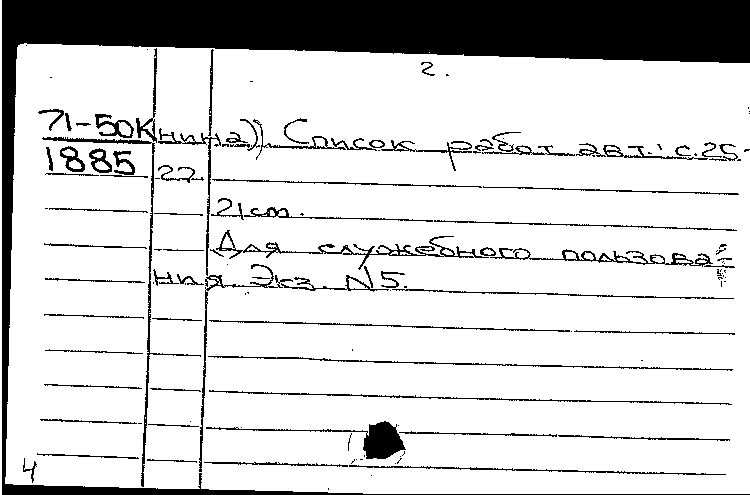 2.
71-50К нина)). Список работ авт.: с.25-
1885 27.
21 см.
Для служебного пользова-
ния. Экз. N5.
4